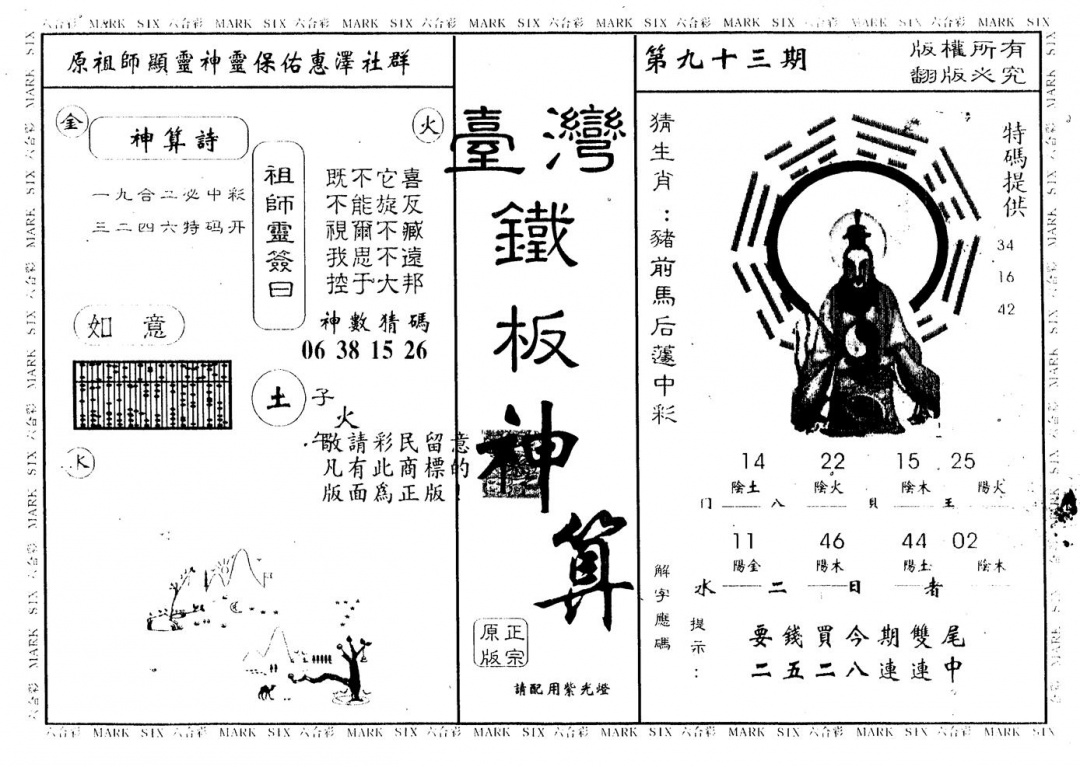 六合彩 MARK SIX 六合彩 MARK SIX 六合彩 MARK SIX 六合彩 MARK SIX 六合彩 MARK SIX 六合彩 MARK SIX 六合彩 MARK SIX 六合彩 MARK SIX
原祖師顯靈神靈保佑惠澤社群
金
神算詩
火
一九合二必中彩
三二四六特码开
祖師靈簽曰
既不它喜
不能旋反
視爾不臧
我思不遠
控于大邦
神數猜碼
06 38 15 26
如意
土
子
火
午
水
敬請彩民留意
凡有此商標的
版面為正版！
臺灣
鐵
板
神
算
正宗
原版
請配用紫光燈
第九十三期
版權所有
翻版必究
猜生肖：豬前馬后蘆中彩
特碼提供
34
16
42
14 22 15 25
陰土 陰火 陰木 陽火
门 八 貝 王
11 46 44 02
陽金 陽木 陽土 陰木
水 二 日 者
解字應碼
提示：
要錢買今期雙尾
二五二八連連中
六合彩 MARK SIX 六合彩 MARK SIX 六合彩 MARK SIX 六合彩 MARK SIX 六合彩 MARK SIX 六合彩 MARK SIX 六合彩 MARK SIX 六合彩 MARK SIX